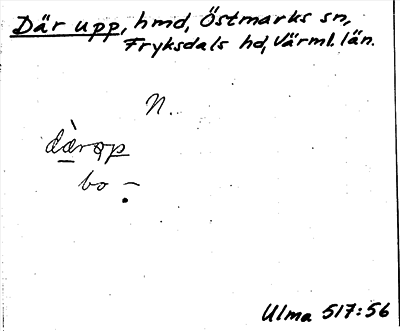 Där upp, hmd, Östmarks sn,
Fryksdals hd, Värml. län.
N.
dàrop
bo –
Ulma 517:56